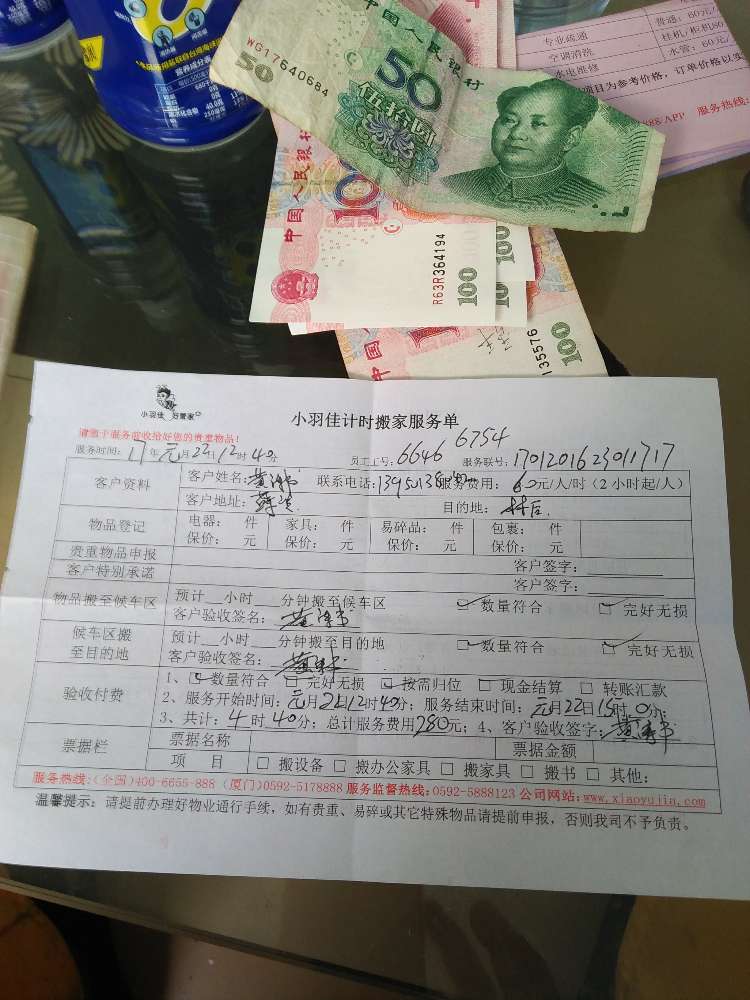 WG17640684
50
中国人民银行
50
伍拾圆
专业疏通
普通：60元/
空调清洗
挂机/柜机80
水电维修
水管：60元
项目为参考价格，订单价格以实
/APP 服务热线：
营养成分表
中国人民银行
100
R63R364194
100
100
中国人
35576
100
小羽佳 好管家
小羽佳计时搬家服务单
请您于服务前收拾好您的贵重物品！
服务时间：17年元月22日12时40分 员工工号：6646 6754 服务联号：1701201623011717
客户资料
客户姓名： 联系电话： 服务费用：60元/人/时（2小时起/人）
客户地址： 目的地：
物品登记
电器： 件 家具： 件 易碎品： 件 包裹： 件
保价： 元 保价： 元 保价： 元 保价： 元
贵重物品申报
客户签字：
客户特别承诺
客户签字：
物品搬至候车区
预计__小时___分钟搬至候车区 数量符合 完好无损
客户验收签名：
候车区搬至目的地
预计__小时___分钟搬至目的地 数量符合 完好无损
客户验收签名：
验收付费
1、数量符合 完好无损 按需归位 □ 现金结算 □ 转账汇款
2、服务开始时间：元月22日12时40分；服务结束时间：元月22日15时0分；
3、共计：4时40分；总计服务费用280元；4、客户验收签字：
票据栏
票据名称 票据金额
项 目 □ 搬设备 □ 搬办公家具 □ 搬家具 □ 搬书 □ 其他：
服务热线：（全国）400-6655-888（厦门）0592-5178888 服务监督热线：0592-5888123 公司网站：www.xiaoyujia.com
温馨提示：请提前办理好物业通行手续，如有贵重、易碎或其它特殊物品请提前申报，否则我司不予负责。